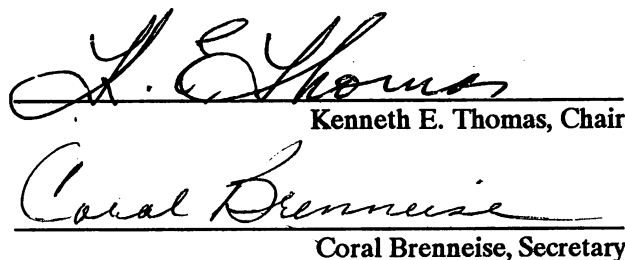 K. E Thomas
Kenneth E. Thomas, Chair
Coral Brenneise
Coral Brenneise, Secretary